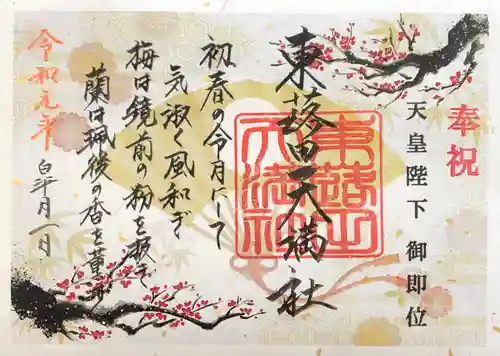 奉祝
天皇陛下御即位
東蕗田天満社
初春の令月にして
気淑く風和ぎ
梅は鏡前の粉を披き
蘭は珮後の香を薫す
令和元年
五月一日